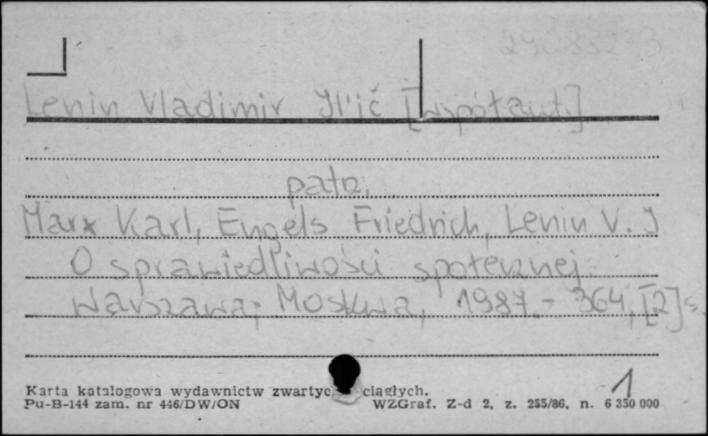 Lenin Vladimir Il'ič [współaut.]
patrz
Marx Karl, Engels Friedrich, Lenin V. I
O sprawiedliwości społecznej.
Warszawa; Moskwa, 1987. - 364, [2] s.
1
Karta katalogowa wydawnictw zwartyc ciągłych.
Pu-B-144 zam. nr 446/DW/ON WZGraf. Z-d 2, z. 255/86, n. 6 350 000